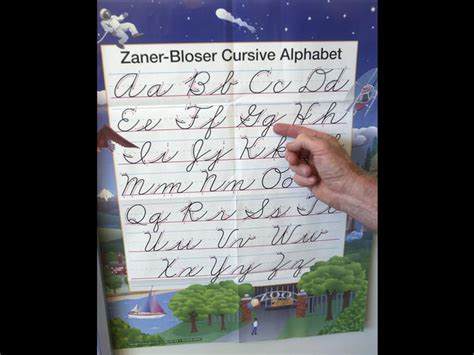 Zaner-Bloser Cursive Alphabet
Aa Bb Cc Dd
Ee Ff Gg Hh
Ii Jj Kk
Mm Nn Oo
Qq Rr Ss Tt
Uu Vv Ww
Xx Yy Zz
ZOO